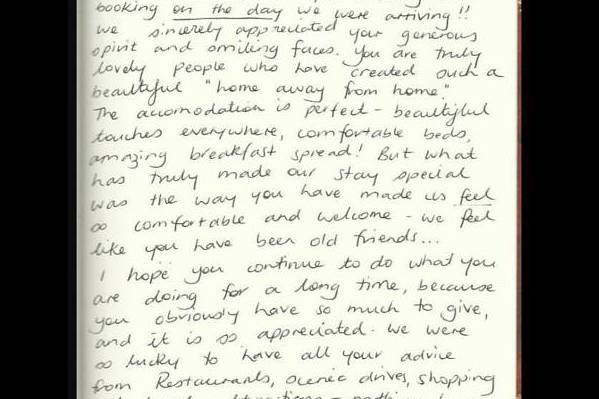 booking on the day we were arriving!!
we sincerely appreciated your generous
spirit and smiling faces. you are truly
lovely people who have created such a
beautiful "home away from home."
The accomodation is perfect - beautiful
touches everywhere, comfortable beds,
amazing breakfast spread! But what
has truly made our stay special
was the way you have made us feel
so comfortable and welcome - we feel
like you have been old friends...
I hope you continue to do what you
are doing for a long time, because
you obviously have so much to give,
and it is so appreciated. we were
so lucky to have all your advice
from Restaurants, scenic drives, shopping